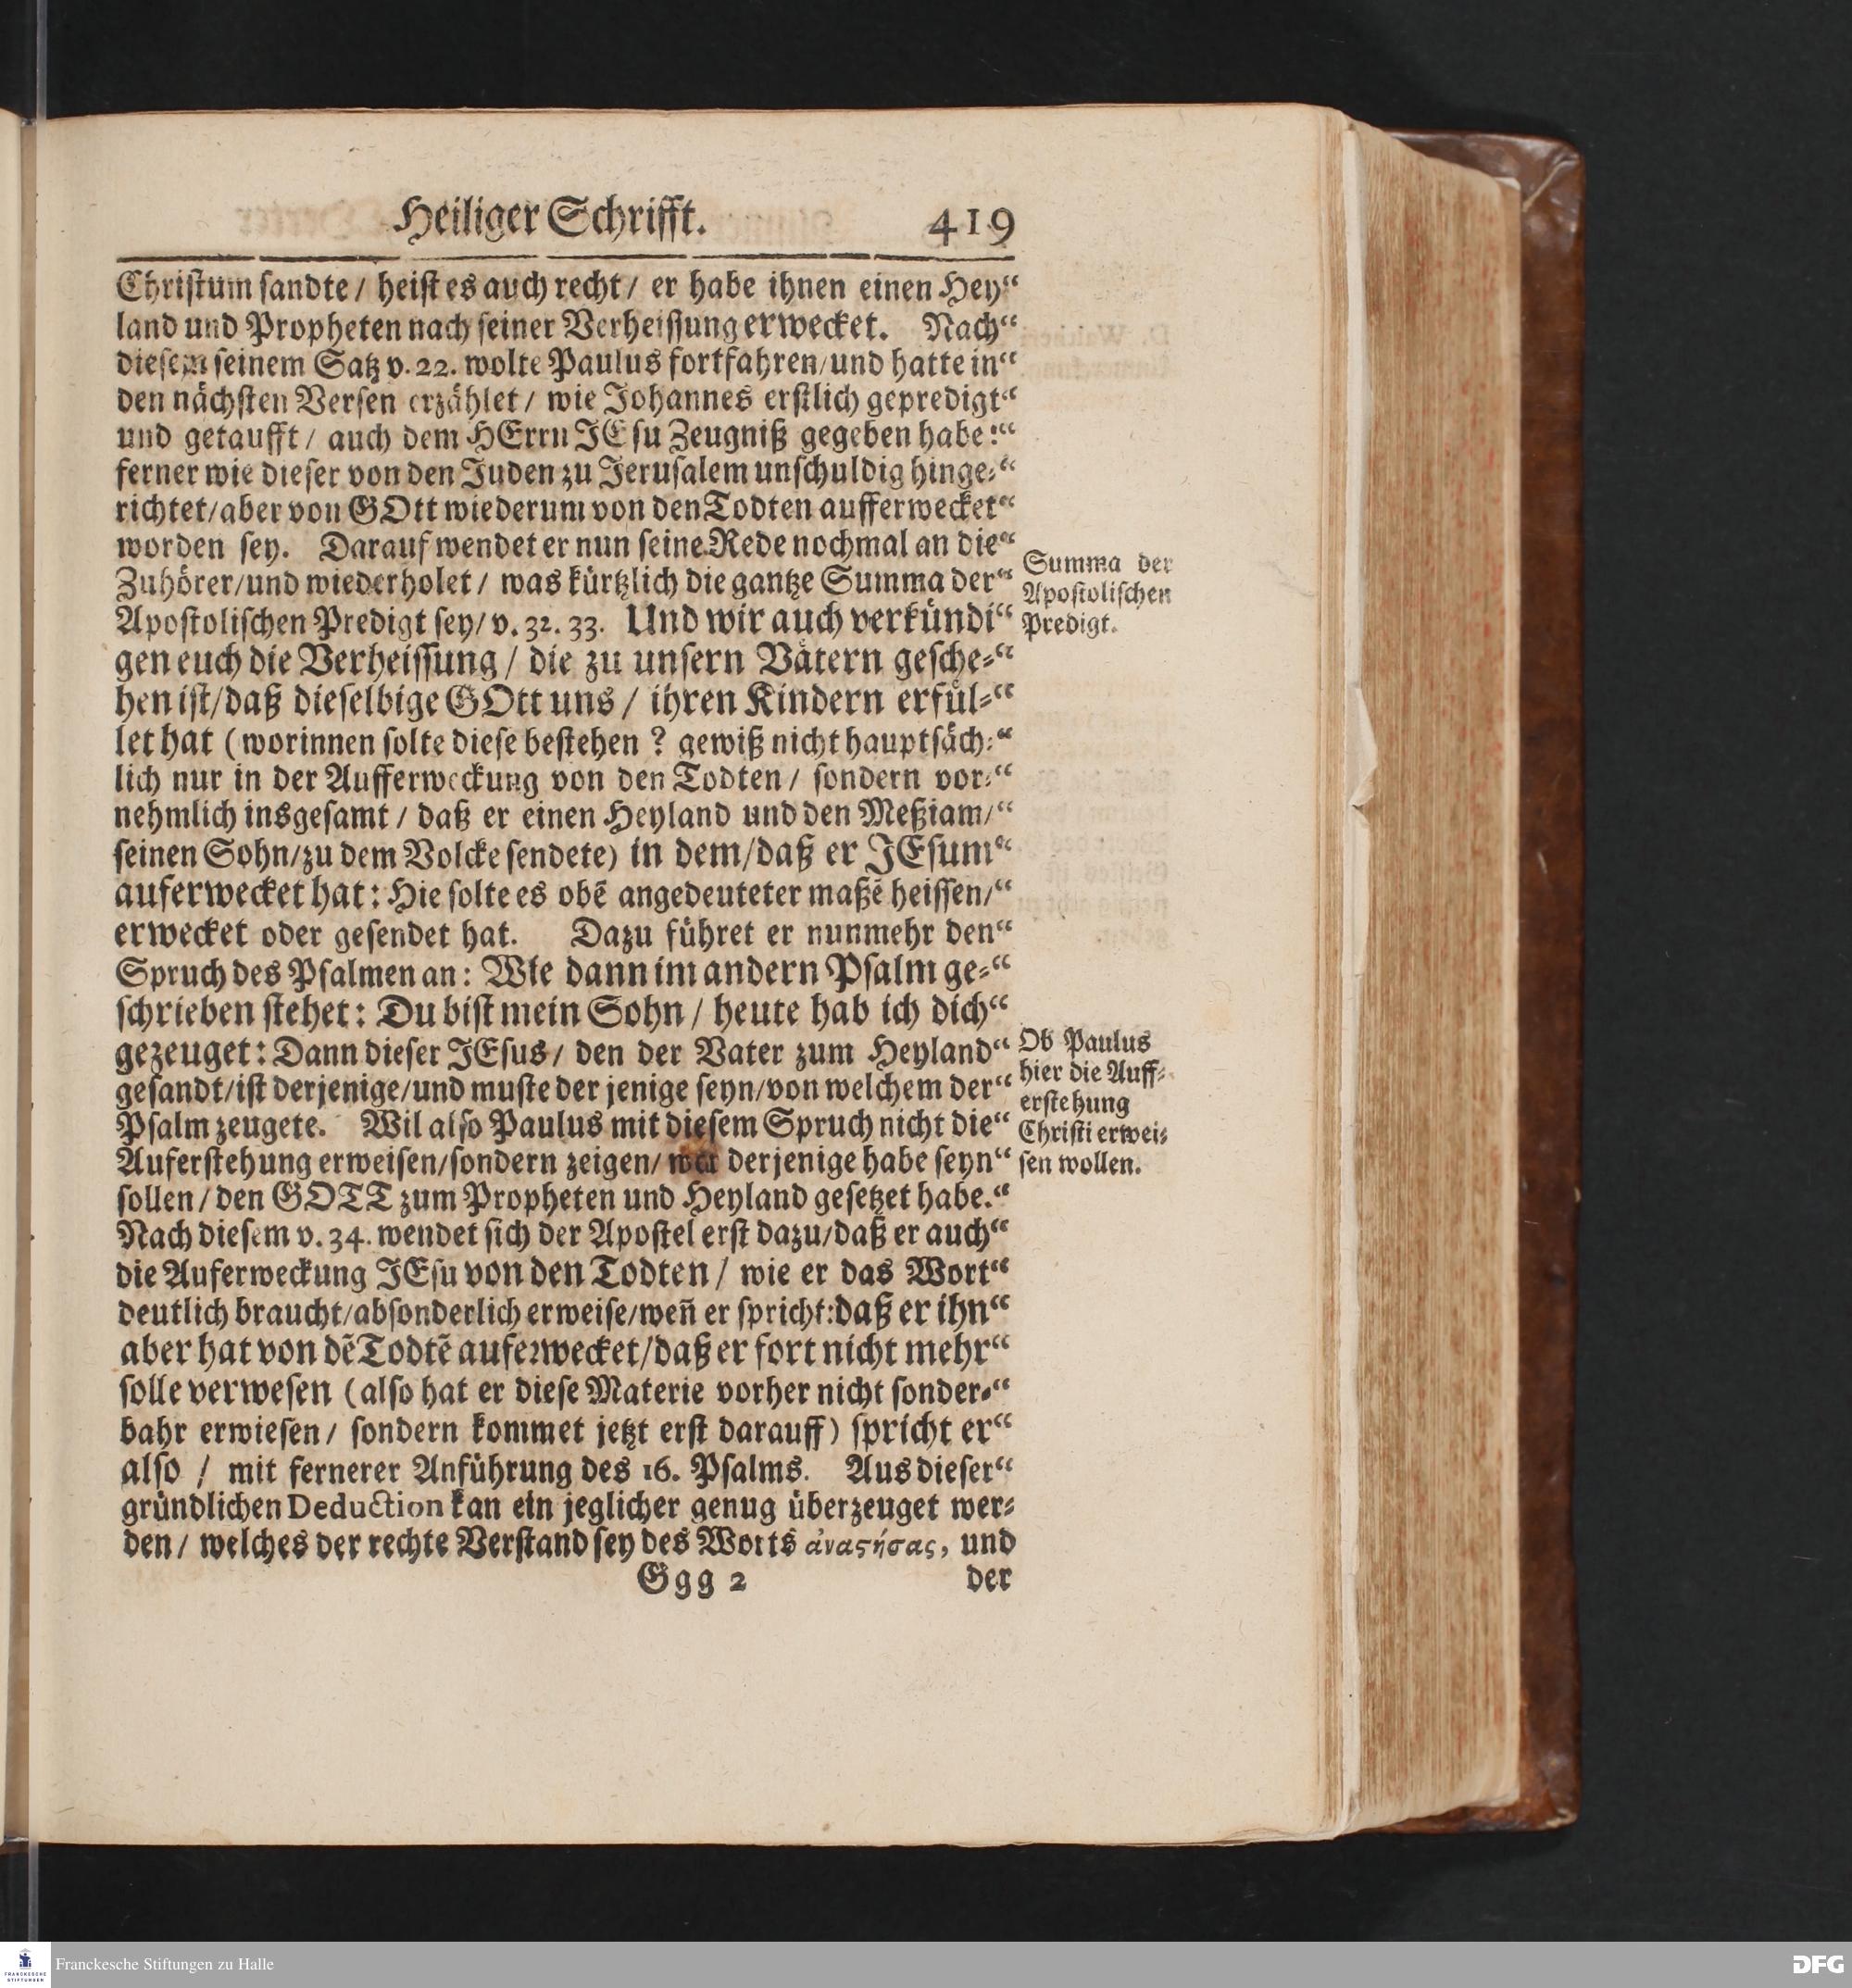 Heiliger Schrifft. 419
Christum sandte / heist es auch recht / er habe ihnen einen Hey“
land und Propheten nach seiner Verheissung erwecket. Nach“
diesem seinem Satz v. 22. wolte Paulus fortfahren/und hatte in“
den nächsten Versen erzählet / wie Johannes erstlich gepredigt“
und getaufft / auch dem HErrn JEsu Zeugniß gegeben habe:“
ferner wie dieser von den Juden zu Jerusalem unschuldig hinge-“
richtet/aber von GOtt wiederum von den Todten aufferwecket“
worden sey. Darauf wendet er nun seine Rede nochmal an die“
Zuhörer/und wiederholet / was kürtzlich die gantze Summa der“
Apostolischen Predigt sey/ v. 32. 33. Und wir auch verkündi“
gen euch die Verheissung / die zu unsern Vätern gesche-“
hen ist/daß dieselbige GOtt uns / ihren Kindern erfül-“
let hat (worinnen solte diese bestehen ? gewiß nicht hauptsäch-“
lich nur in der Aufferweckung von den Todten / sondern vor-“
nehmlich insgesamt / daß er einen Heyland und den Meßiam/“
seinen Sohn/zu dem Volcke sendete) in dem/daß er JEsum“
auferwecket hat: Hie solte es obē angedeuteter maßē heissen/“
erwecket oder gesendet hat. Dazu führet er nunmehr den“
Spruch des Psalmen an: Wie dann im andern Psalm ge-“
schrieben stehet: Du bist mein Sohn / heute hab ich dich“
gezeuget: Dann dieser JEsus / den der Vater zum Heyland“
gesandt/ist derjenige/und muste der jenige seyn/von welchem der“
Psalm zeugete. Wil also Paulus mit diesem Spruch nicht die“
Auferstehung erweisen/sondern zeigen/ wer derjenige habe seyn“
sollen / den GOTT zum Propheten und Heyland gesetzet habe.“
Nach diesem v. 34. wendet sich der Apostel erst dazu/daß er auch“
die Auferweckung JEsu von den Todten / wie er das Wort“
deutlich braucht/absonderlich erweise/weñ er spricht:daß er ihn“
aber hat von dē Todtē auferwecket/daß er fort nicht mehr“
solle verwesen (also hat er diese Materie vorher nicht sonder-“
bahr erwiesen / sondern kommet jetzt erst darauff) spricht er“
also / mit fernerer Anführung des 16. Psalms. Aus dieser“
gründlichen Deduction kan ein jeglicher genug überzeuget wer-
den / welches der rechte Verstand sey des Worts ἀναςήσας, und
Ggg 2 der
Summa der
Apostolischen
Predigt.
Ob Paulus
hier die Auff-
erstehung
Christi erwei-
sen wollen.
Franckesche Stiftungen zu Halle
FRANCKESCHE
STIFTUNGEN
DFG